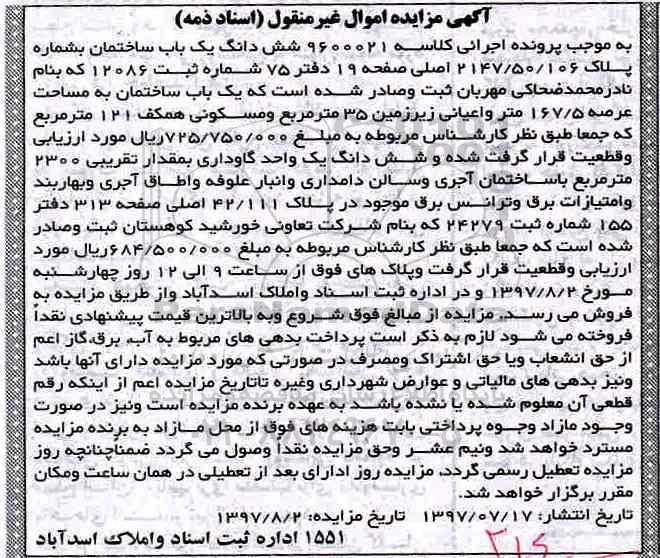 آگهی مزایده اموال غیرمنقول (اسناد ذمه)
به موجب پرونده اجرائی کلاسه ۹۶۰۰۰۲۱ شش دانگ یک باب ساختمان بشماره
پلاک ۲۱۴۷/۵۰/۱۰۶ اصلی صفحه ۱۹ دفتر ۷۵ شماره ثبت ۱۲۰۸۶ که بنام
نادرمحمدضحاکی مهربان ثبت وصادر شده است که یک باب ساختمان به مساحت
عرصه ۱۶۷/۵ متر واعیانی زیرزمین ۳۵ مترمربع ومسکونی همکف ۱۲۱ مترمربع
که جمعا طبق نظر کارشناس مربوطه به مبلغ ۷۲۵/۷۵۰/۰۰۰ریال مورد ارزیابی
وقطعیت قرار گرفت شده و شش دانگ یک واحد گاوداری بمقدار تقریبی ۲۳۰۰
مترمربع باساختمان آجری وسالن دامداری وانبار علوفه واطاق آجری وبهاربند
وامتیازات برق وترانس برق موجود در پلاک ۴۲/۱۱۱ اصلی صفحه ۳۱۳ دفتر
۱۵۵ شماره ثبت ۲۴۲۷۹ که بنام شرکت تعاونی خورشید کوهستان ثبت وصادر
شده است که جمعا طبق نظر کارشناس مربوطه به مبلغ ۶۸۴/۵۰۰/۰۰۰ریال مورد
ارزیابی وقطعیت قرار گرفت وپلاک های فوق از ساعت ۹ الی ۱۲ روز چهارشنبه
مورخ ۱۳۹۷/۸/۲ و در اداره ثبت اسناد واملاک اسدآباد واز طریق مزایده به
فروش می رسد. مزایده از مبالغ فوق شروع وبه بالاترین قیمت پیشنهادی نقداً
فروخته می شود لازم به ذکر است پرداخت بدهی های مربوط به آب، برق،گاز اعم
از حق انشعاب ویا حق اشتراک ومصرف در صورتی که مورد مزایده دارای آنها باشد
ونیز بدهی های مالیاتی و عوارض شهرداری وغیره تاتاریخ مزایده اعم از اینکه رقم
قطعی آن معلوم شده یا نشده باشد به عهده برنده مزایده است ونیز در صورت
وجود مازاد وجوه پرداختی بابت هزینه های فوق از محل مازاد به برنده مزایده
مسترد خواهد شد ونیم عشر وحق مزایده نقداً وصول می گردد ضمناًچنانچه روز
مزایده تعطیل رسمی گردد، مزایده روز ادارای بعد از تعطیلی در همان ساعت ومکان
مقرر برگزار خواهد شد.
تاریخ انتشار: ۱۳۹۷/۰۷/۱۷ تاریخ مزایده: ۱۳۹۷/۸/۲
۱۵۵۱ اداره ثبت اسناد واملاک اسدآباد